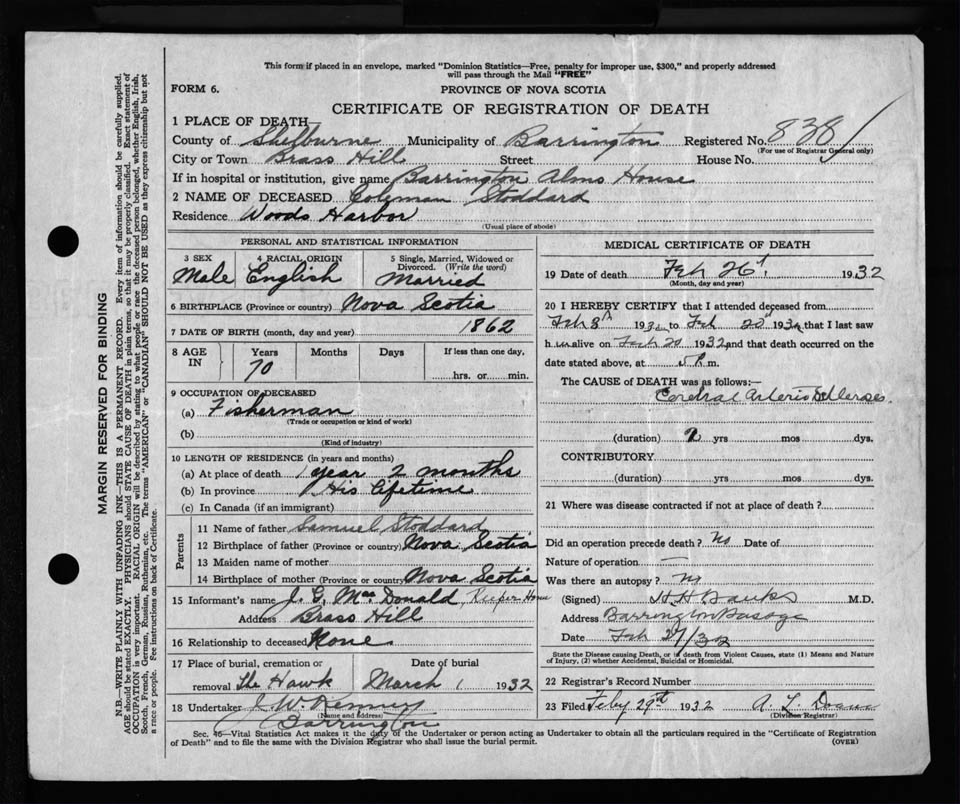 This form if placed in an envelope, marked "Dominion Statistics—Free, penalty for improper use, $300," and properly addressed
will pass through the Mail "FREE"
FORM 6.
PROVINCE OF NOVA SCOTIA
CERTIFICATE OF REGISTRATION OF DEATH
1 PLACE OF DEATH—
County of Shelburne Municipality of Barrington Registered No. 838
(For use of Registrar General only)
City or Town Brass Hill Street House No.
If in hospital or institution, give name Barrington Alms House
2 NAME OF DECEASED Coleman Stoddard
Residence Woods Harbor
(Usual place of abode)
PERSONAL AND STATISTICAL INFORMATION
3 SEX 4 RACIAL ORIGIN 5 Single, Married, Widowed or
Divorced. (Write the word)
Male English Married
6 BIRTHPLACE (Province or country) Nova Scotia
7 DATE OF BIRTH (month, day and year) 1862
8 AGE IN Years Months Days If less than one day,
70
hrs. or min.
9 OCCUPATION OF DECEASED
(a) Fisherman
(Trade or occupation or kind of work)
(b)
(Kind of industry)
10 LENGTH OF RESIDENCE (in years and months)
(a) At place of death 1 year 2 months
(b) In province His Lifetime
(c) In Canada (if an immigrant)
Parents
11 Name of father Samuel Stoddard
12 Birthplace of father (Province or country) Nova Scotia
13 Maiden name of mother
14 Birthplace of mother (Province or country) Nova Scotia
15 Informant's name J. C. MacDonald, Keeper Home
Address Brass Hill
16 Relationship to deceased None
17 Place of burial, cremation or Date of burial
removal The Hawk March 1 1932
18 Undertaker J. W. Kenney
(Name and address)
Barrington
MEDICAL CERTIFICATE OF DEATH
19 Date of death Feb 26 1932
(Month, day and year)
20 I HEREBY CERTIFY that I attended deceased from
Feb 8th 1932 to Feb 20th 1932 that I last saw
him alive on Feb 20 1932 and that death occurred on the
date stated above, at 5 P. m.
The CAUSE of DEATH was as follows:—
Cerebral Arterio Sclerosis
(duration) 2 yrs mos dys.
CONTRIBUTORY
(duration) yrs mos dys.
21 Where was disease contracted if not at place of death?
Did an operation precede death? No Date of
Nature of operation —
Was there an autopsy? No
(Signed) H H Banks M.D.
Address Barrington Passage
Date Feb 27/32
State the Disease causing Death, or in death from Violent Causes, state (1) Means and Nature
of Injury, (2) whether Accidental, Suicidal or Homicidal.
22 Registrar's Record Number
23 Filed Feby 29th 1932 A. L. Doane
(Division Registrar)
Sec. 46—Vital Statistics Act makes it the duty of the Undertaker or person acting as Undertaker to obtain all the particulars required in the "Certificate of Registration
of Death" and to file the same with the Division Registrar who shall issue the burial permit.
(OVER)
MARGIN RESERVED FOR BINDING
N.B.—WRITE PLAINLY WITH UNFADING INK—THIS IS A PERMANENT RECORD. Every item of information should be carefully supplied.
AGE should be stated EXACTLY. PHYSICIANS should STATE CAUSE OF DEATH in plain terms, so that it may be properly classified. Exact statement of
OCCUPATION is very important. RACIAL ORIGIN will be described by stating to what people or race the deceased person belonged, whether English, Irish,
Scotch, French, German, Russian, Ruthenian, etc. The terms "AMERICAN" or "CANADIAN" SHOULD NOT BE USED as they express citizenship but not
a race or people. See instructions on back of Certificate.